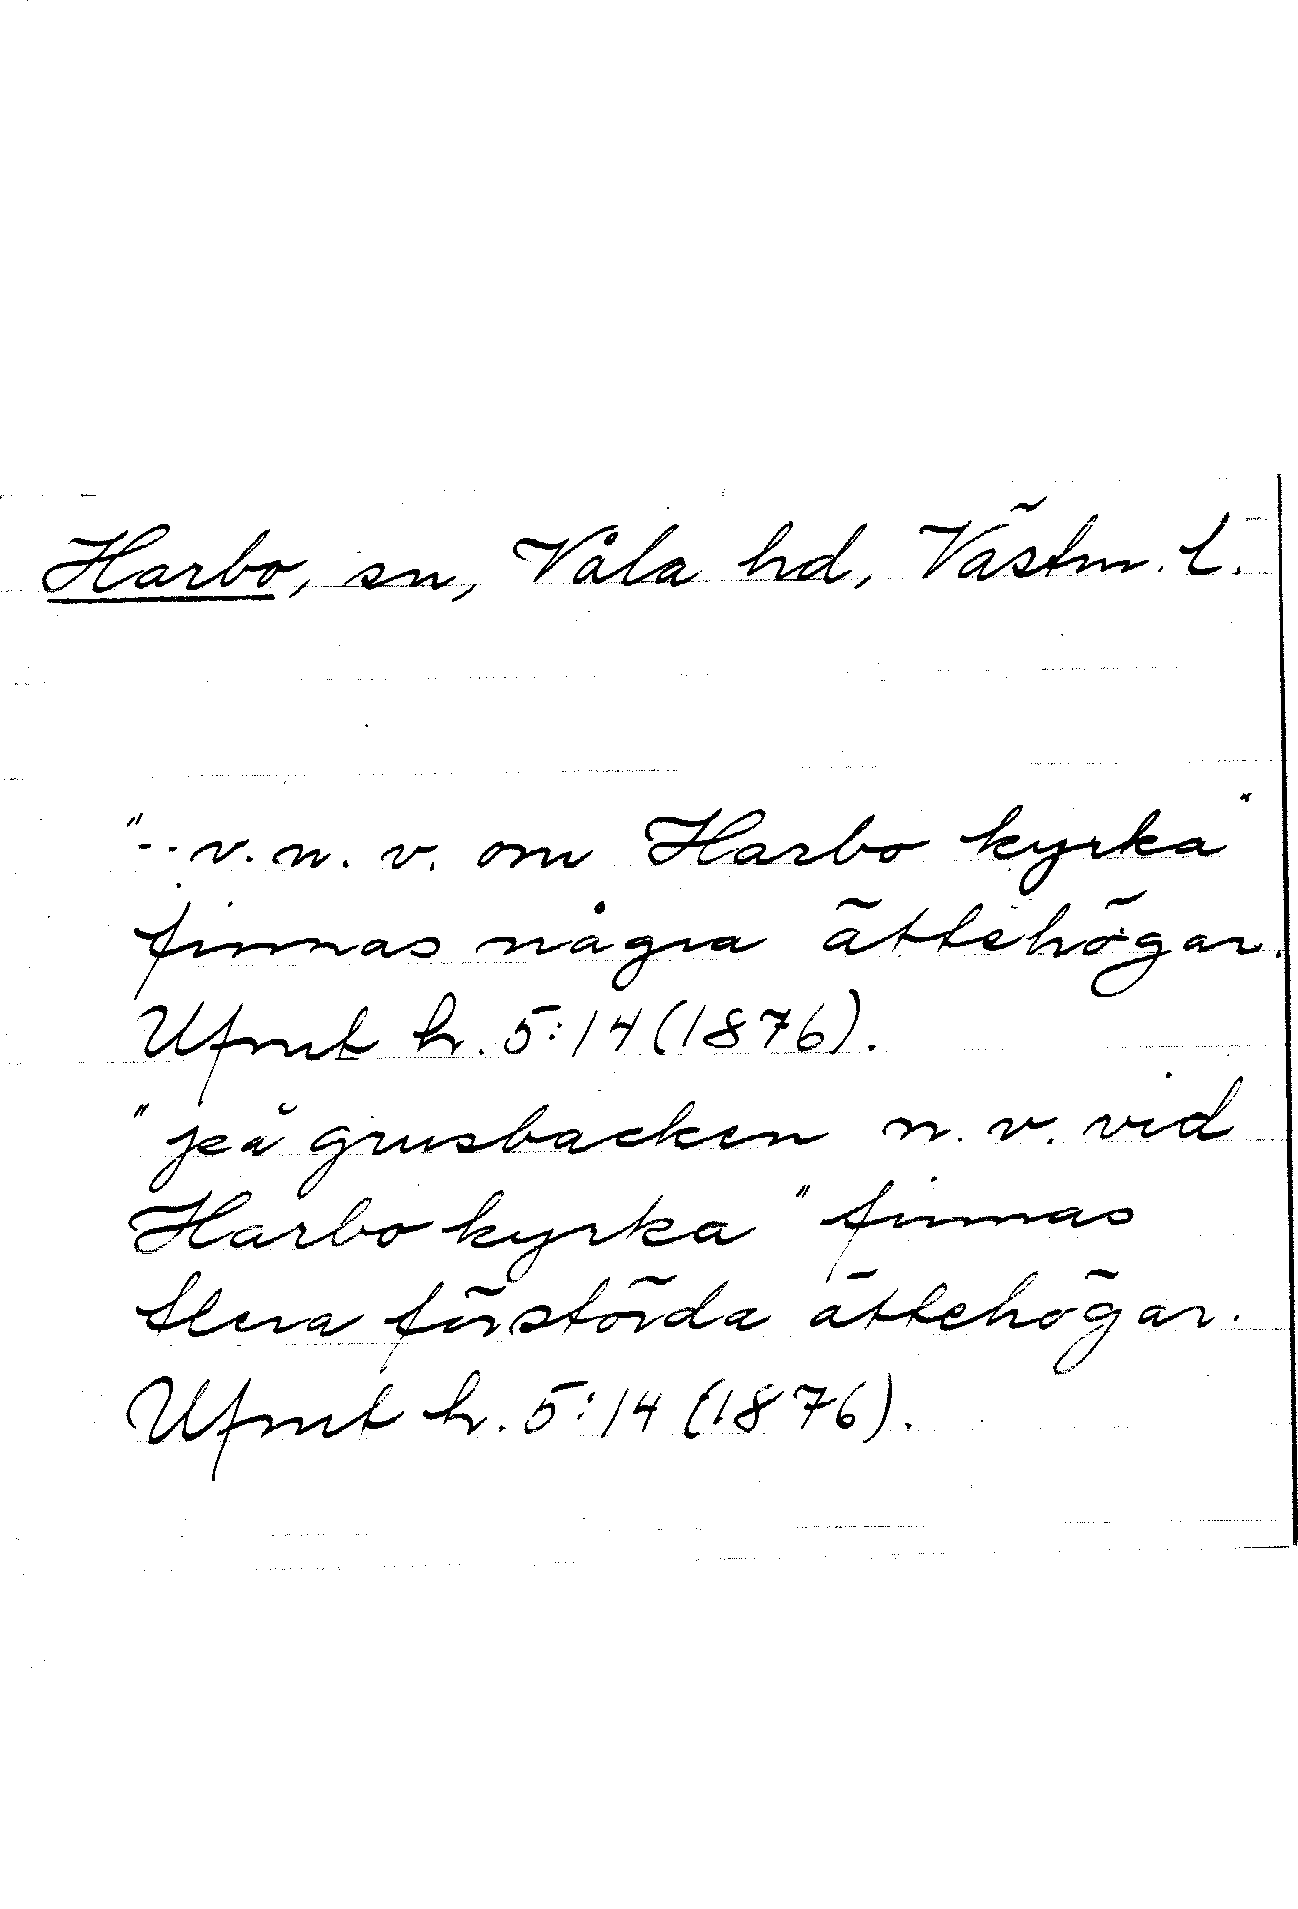 Harbo, sn, Våla hd, Västm. l.
"-- v. n. v. om Harbo kyrka"
finnas några ättehögar.
Ufmt h. 5:14 (1876).
"på grusbacken n. v. vid
Harbo kyrka" finnas
flera förstörda ättehögar.
Ufmt h. 5:14 (1876).